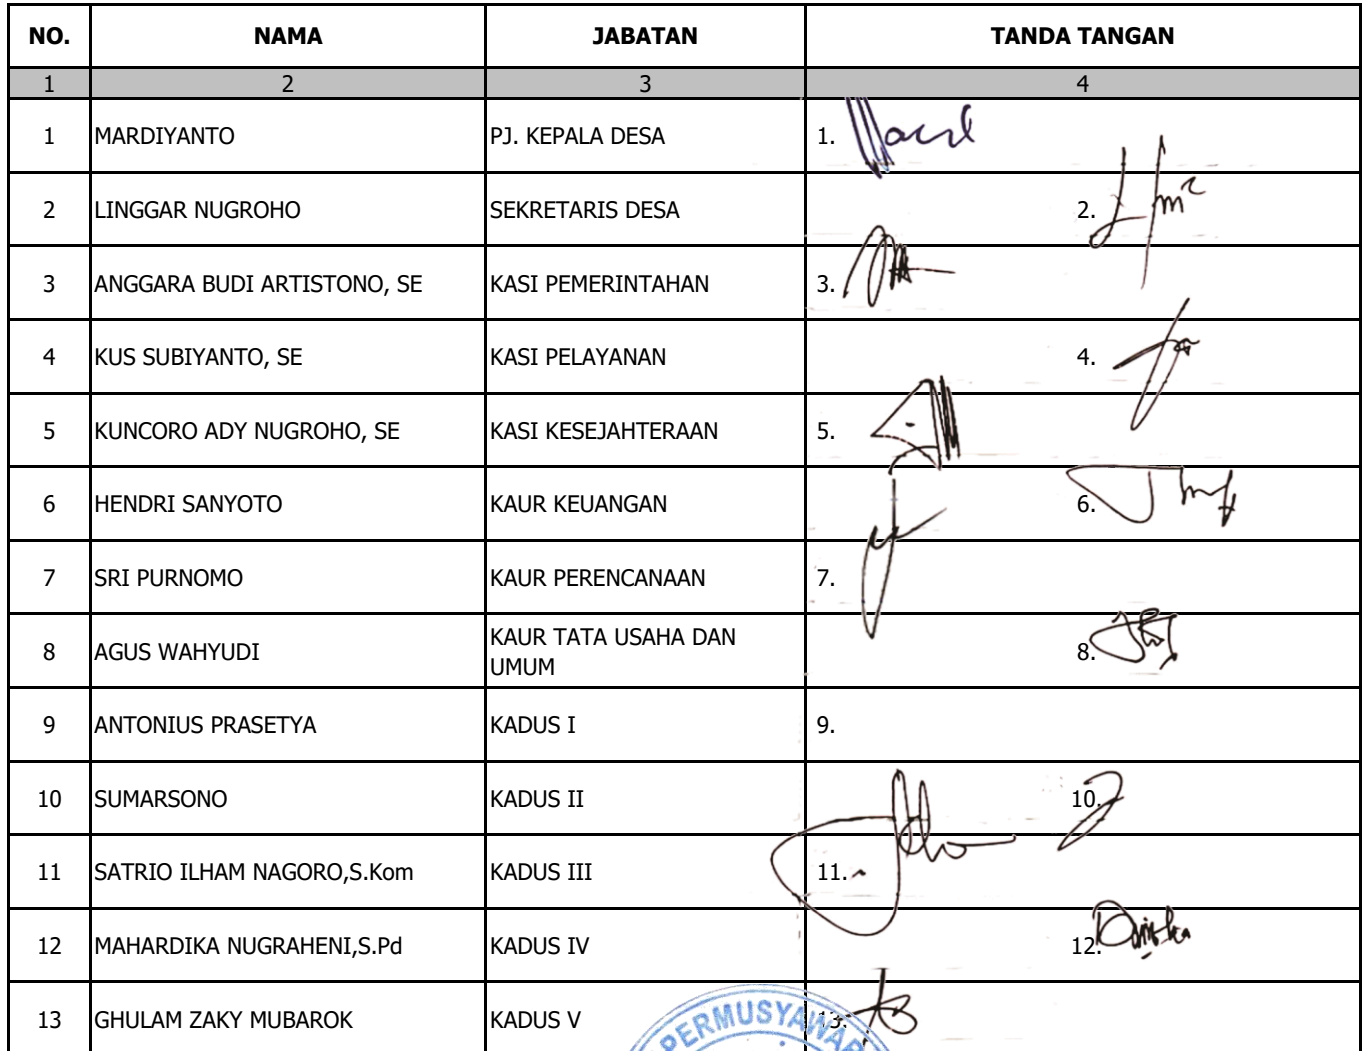 NO. NAMA JABATAN TANDA TANGAN
1 2 3 4
1 MARDIYANTO PJ. KEPALA DESA 1.
2 LINGGAR NUGROHO SEKRETARIS DESA 2.
3 ANGGARA BUDI ARTISTONO, SE KASI PEMERINTAHAN 3.
4 KUS SUBIYANTO, SE KASI PELAYANAN 4.
5 KUNCORO ADY NUGROHO, SE KASI KESEJAHTERAAN 5.
6 HENDRI SANYOTO KAUR KEUANGAN 6.
7 SRI PURNOMO KAUR PERENCANAAN 7.
8 AGUS WAHYUDI KAUR TATA USAHA DAN
UMUM 8.
9 ANTONIUS PRASETYA KADUS I 9.
10 SUMARSONO KADUS II 10.
11 SATRIO ILHAM NAGORO,S.Kom KADUS III 11.
12 MAHARDIKA NUGRAHENI,S.Pd KADUS IV 12.
13 GHULAM ZAKY MUBAROK KADUS V 13.